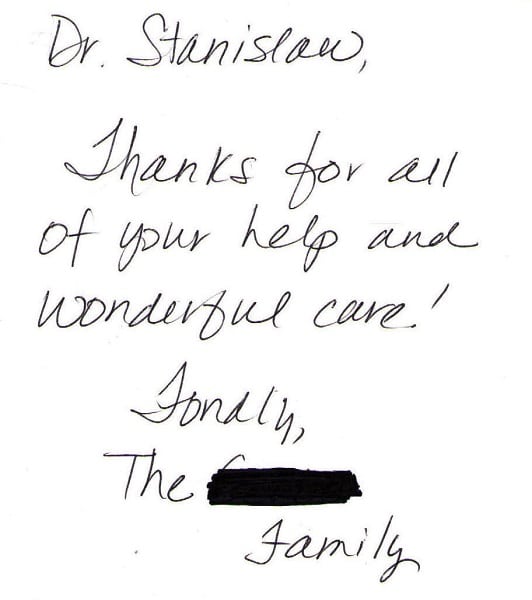 Dr. Stanislaw,
Thanks for all
of your help and
wonderful care!
Fondly,
The
Family